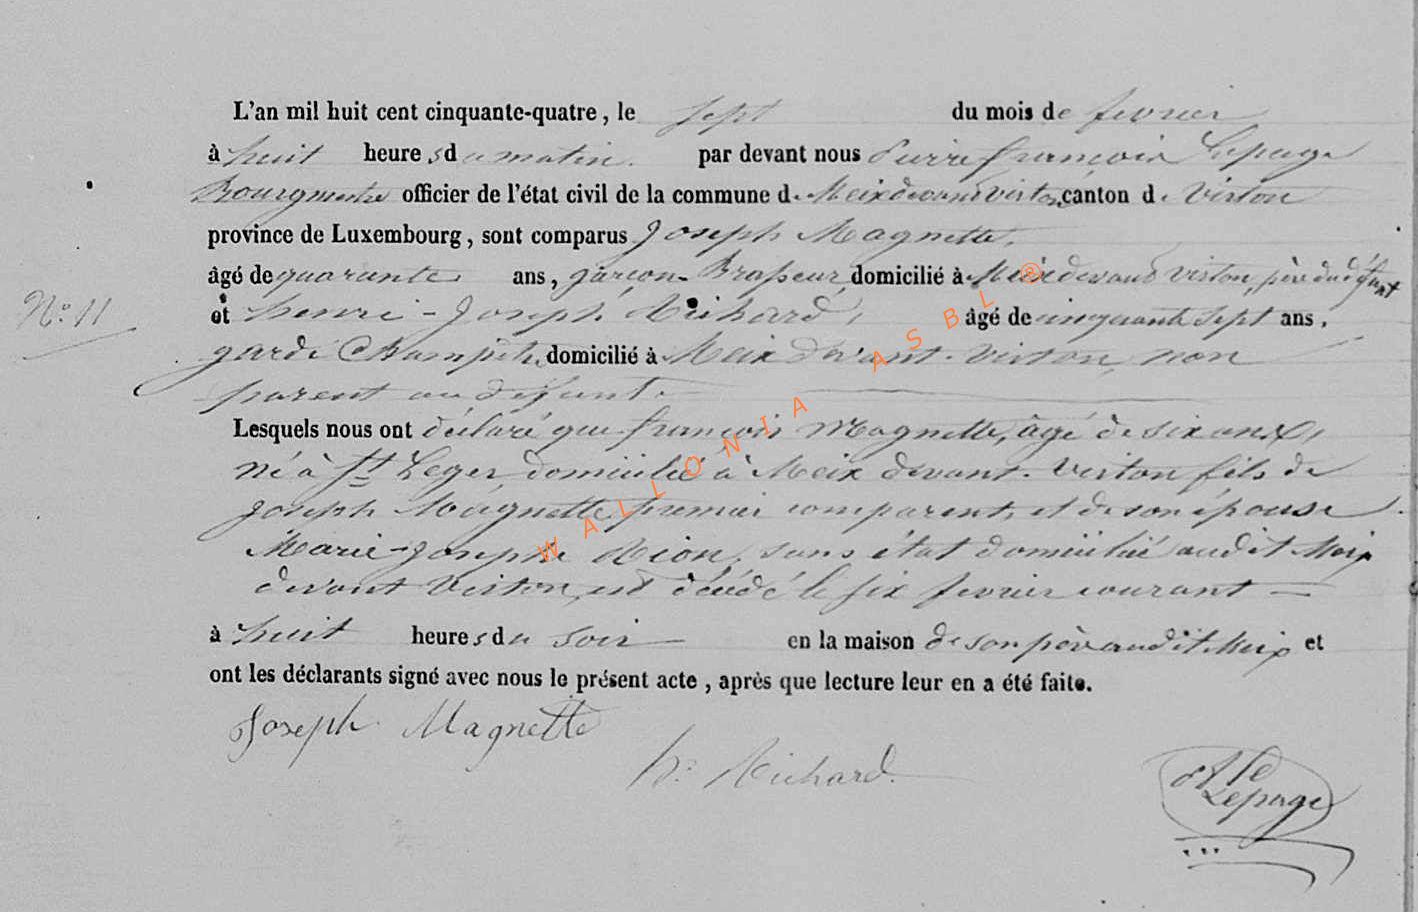 L'an mil huit cent cinquante-quatre, le sept du mois de fevrier
à huit heures du matin. par devant nous Pierre françois Lepage
Bourgmestre officier de l'état civil de la commune de Meix devant Virton, canton de Virton
province de Luxembourg, sont comparus Joseph Magnette,
âgé de quarante ans, garçon Brasseur domicilié à Meix devant Virton, père du défunt
N° 11
et henri-Joseph Richard, âgé de cinquante sept ans,
garde Champêtre, domicilié à Meix devant-Virton, non
parent au defunt.
Lesquels nous ont déclaré que françois Magnette, âgé de six ans,
né à St Leger domicilié à Meix devant-Virton fils de
Joseph Magnette premier comparent, et de son épouse
Marie-Josephe Rion, sans état domicilié audit Meix
devant Virton, est décédé le six fevrier courant
à huit heures du soir en la maison de son père audit Meix et
ont les déclarants signé avec nous le présent acte, après que lecture leur en a été faite.
Joseph Magnette
h. Richard.
Lepage
WALLONIA ASBL ®